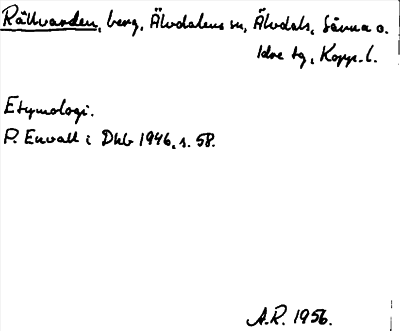 Rällvarden, berg, Älvdalens sn, Älvdals, Särna o.
Idre tg, Kopp. l.
Etymologi.
P. Envall i Dhb 1946, s. 58.
A.R. 1956.